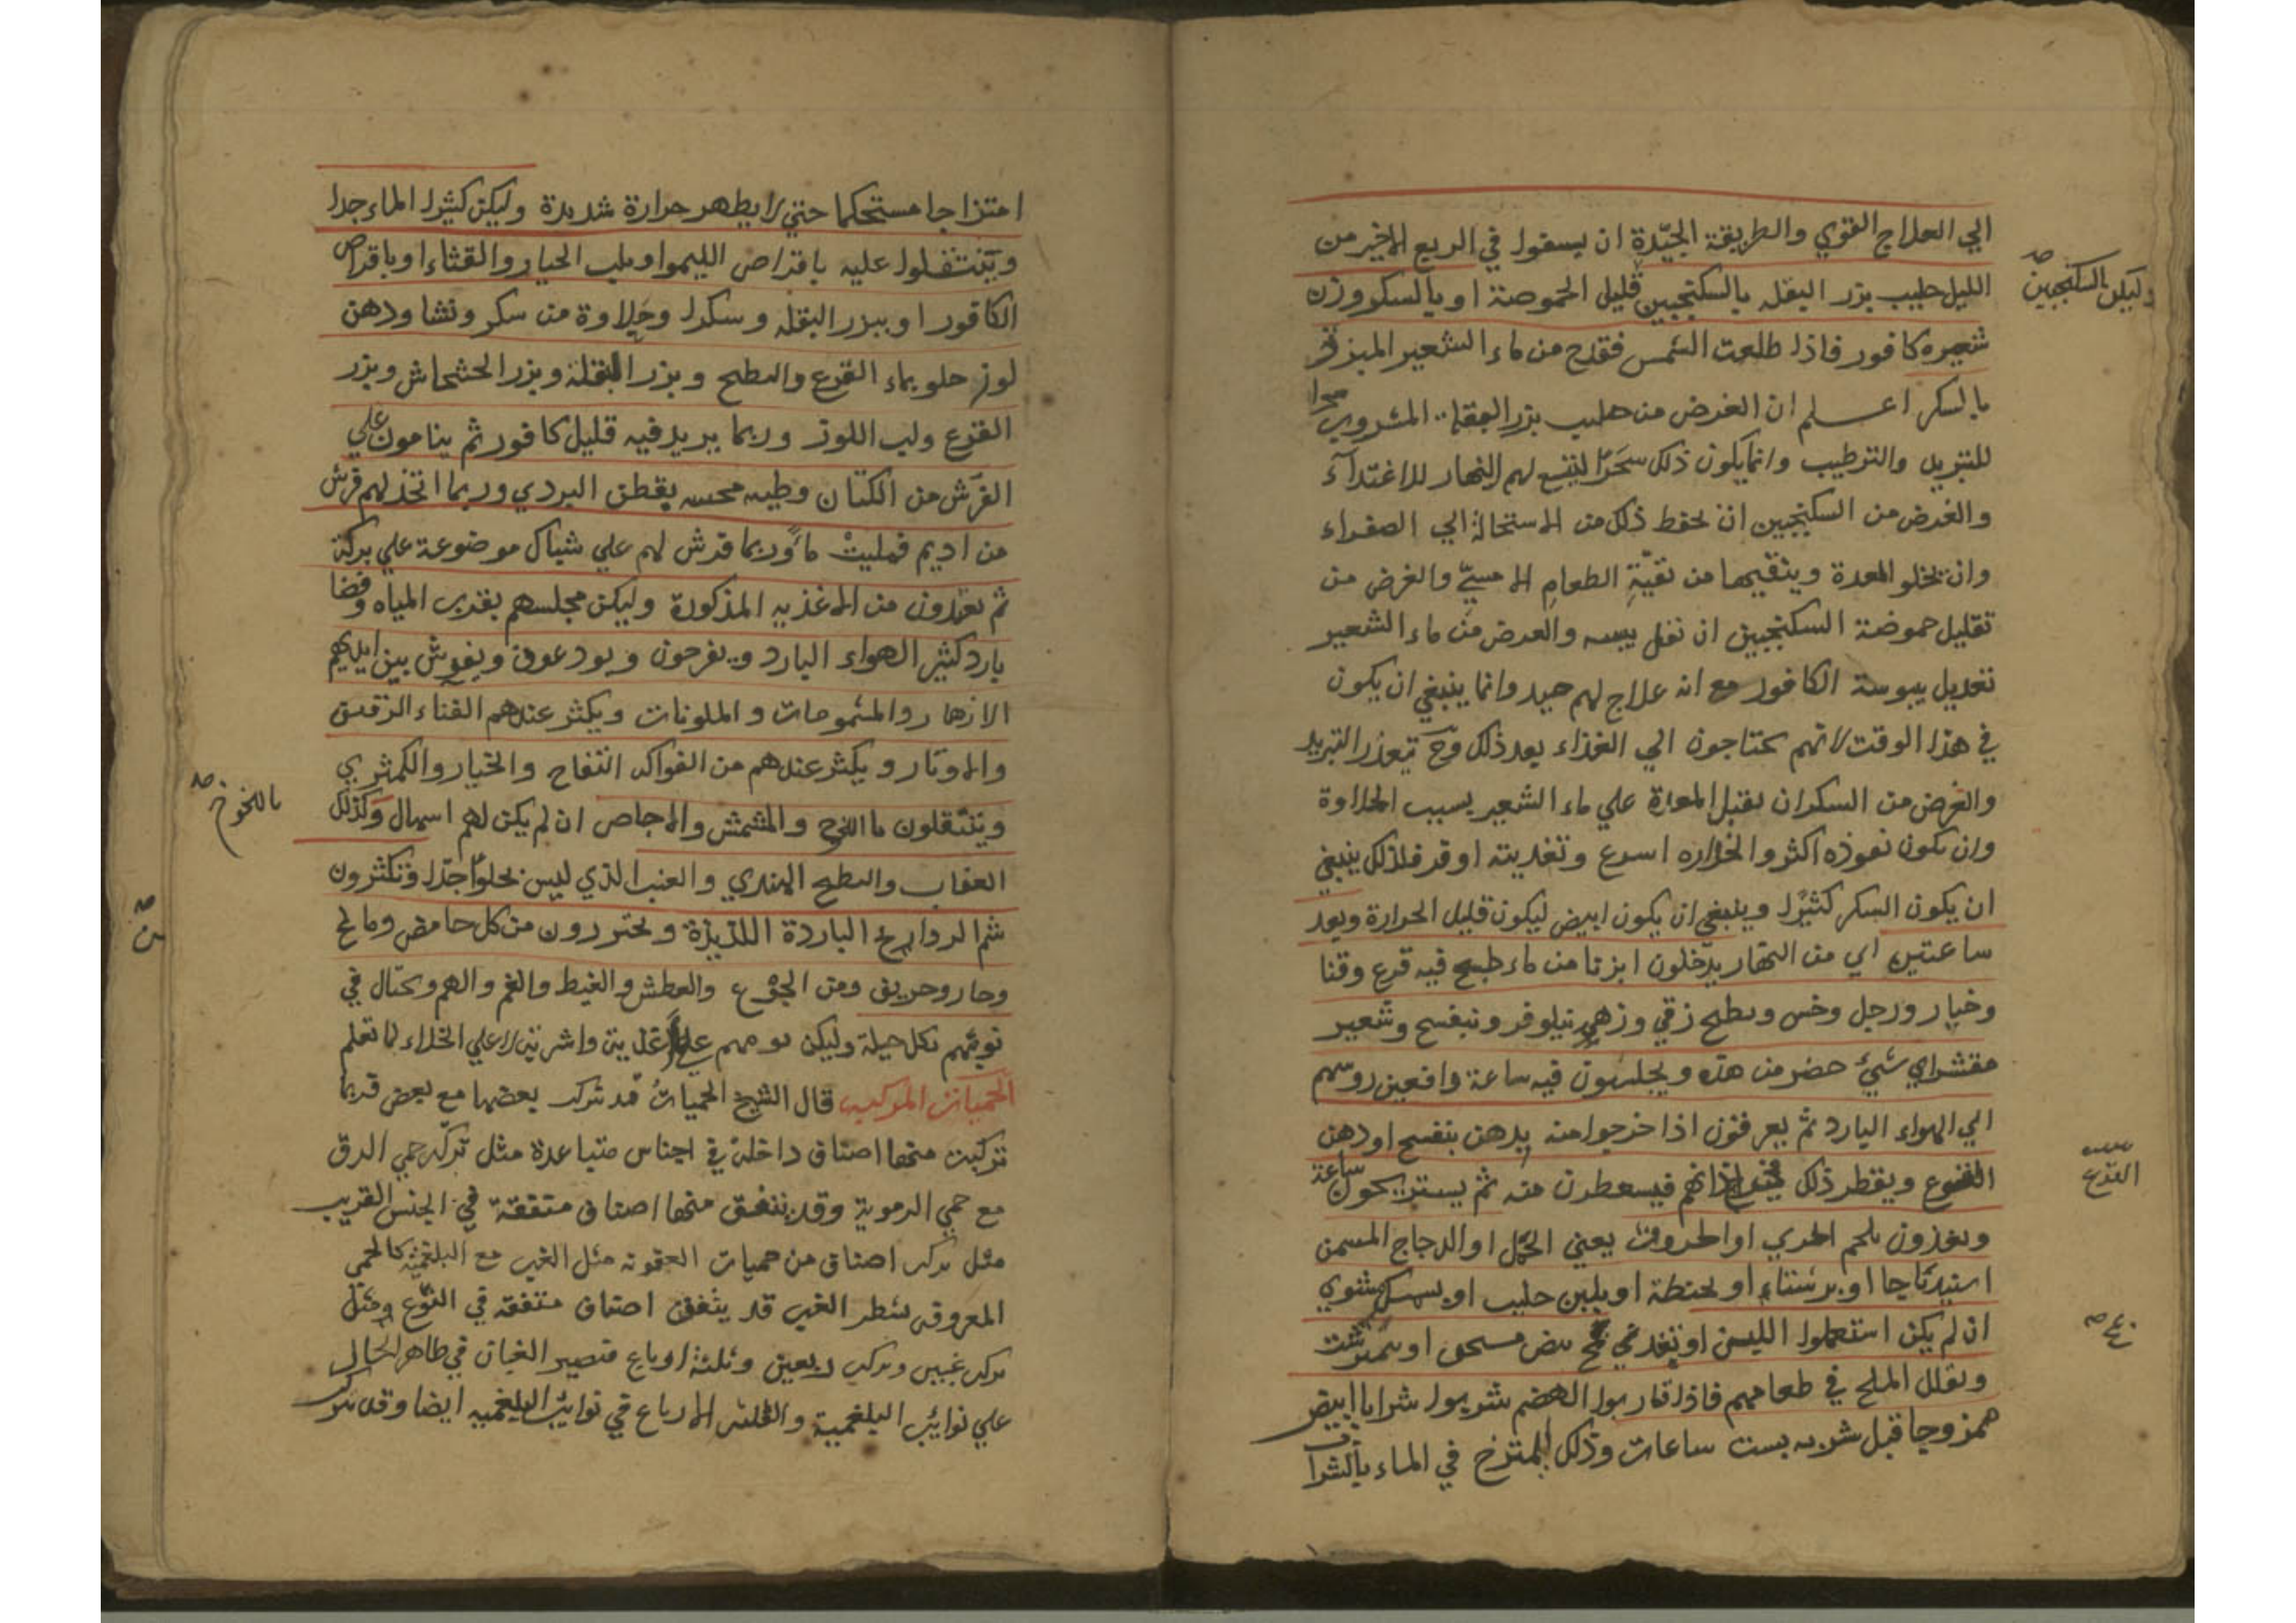 الي العلاج القوي والطريقة الجيّدة ان يسقوا في الربع الاخير من
الليل حليب بزر البقله بالسكنجبين قليل الحموصة او بالسكر وزن
وليكن السكنجبين صح
شعيره كافور فاذا طلعت الشمس فقدح من ماء الشعير المبزر
بالسكر اعلم ان الغرض من حليب بزر البقلة المشروب سحرا
للتبريد والترطيب وانما يكون ذلك سَحَرًا ليتسع لهم النهار للاغتدآء
والغرض من السكنجبين ان يحفظ ذلك من الاستحالة الي الصفراء
وان يخلو المعدة وينقيها من بقيّةِ الطعامِ الامسيِّ والغرض من
تقليل حموضة السكنجبين ان تقل يبسه والعرض من ماء الشعير
تعديل يبوسة الكافور مع انه علاج لهم جيد وانما ينبغي ان يكون
في هذا الوقت لانهم يحتاجون الي الغذاء بعد ذلك وحَ تيعذر التبريد
والغرض من السكر ان يقبل المعدة علي ماء الشعير بسبب الحلاوة
وان يكون نفوذه اكثر والحداره اسرع وتغديته اوفر فلذلك ينبغي
ان يكون السكر كثيرًا وينبغي ان يكون ابيض ليكون قليل الحرارة وبعد
ساعتين اي من النهار يدّخلون ابزنا من ماء طبخ فيه قرع وقثا
وخيار ورجل وخس وبطيح زقي وزهر نيلوفر وبنفسج وشعير
مقشر اي شيئ حضر من هذه ويجلسون فيه ساعة رافعين روسهم
الي الهواء البارد ثم يعرفون اذا خرجوا منه بدهن بنفسج او دهن
القرع صح
القرع ويقطر ذلك في اذانهم فيسعطون منه ثم يستريحون ساعة
ويغذون بلحم الجدي او الخروف يعني الحَمَل او الدجاج المسمن
اسبيدباجا او برشتاء او بحنطة او بلبن حليب او بسمك مشوي
ان لم يكن استعملوا اللبن او بغد في مخ بيض مسحى او نيمرشت
مخ صح
ويقلل الملح في طعامهم فاذا قاربوا الهضم شربوا شرابا ابيض
ممزوجا قبل شربه بست ساعات وذلك ليمتزج في الماء بالشراب
امتزاجا مستحكما حتي لا يظهر حرارة شديدة وليكن كثيرا الماء جدا
ويتنقلوا عليه باقراص الليموا وبلب الخيار والقثاء او باقراص
الكافور او ببزر البقله وسكرا وحلاوة من سكر ونشا ودهن
لوز حلو بماء القرع والبطيح وبزر البقلة وبزر الخشخاش وبزر
القرع ولب اللوز وربما يريد فيه قليل كافور ثم ينامون علي
الفرش من الكتان وطيه محسه بقطن البردي وربما اتخذ لهم فرش
من اديم فمليتْ ماءً وربما فرش لهم علي شباك موضوعة علي بركة
ثم يغدون من الاغذيه المذكورة وليكن مجلسهم بقرب المياه وفضا
بارد كثير الهواء البارد ويفرحون ويودعون ويفرش بين ايديهم
الازهار والمشمومات والملونات ويكثر عندهم الغناء الرقيق
والاوتار ويكثر عندهم من الفواكه التفاح والخيار والكمثري
ويتنقلون باالخوخ والمشمش والاجاص ان لم يكن لهم اسهال وكذلك
باالخوخ صح
العناب والبطيح الهندي والعنب الذي ليس بحلوًا جدًا وتكثرون
من صح
شم الروايح الباردة اللذيذة ويحترزون من كل حامض ومالح
وحار وحريف ومن الجوع والعطش والغيظ والغم والهم ويحتال في
نومهم بكل حيلة وليكن نومهم علي اغذيتة واشربة لا علي الخلاء لما تعلم
الحميات المركبه قال الشيخ الحمياتُ قد تتركب بعضها مع بعض فربما
تركبت منها اصناف داخلة في اجناس متباعدة مثل تركّب حمي الدق
مع حمي الدموية وقد يتفق منها اصناف متفقة في الجنس القريب
مثل تركب اصناف من حميات العفونه مثل الغب مع البلغمية كالحمي
المعروفه بشطر الغب قد يتفق اصناف متفقه في النوّع ومثل
تركب غبين وتركب ربعين وثلثة ارباع فتصير الغبان في ظاهر الحال
علي نوائب البلغمية والثلثه الارباع في نوائب البلغميه ايضا وقد تتركب